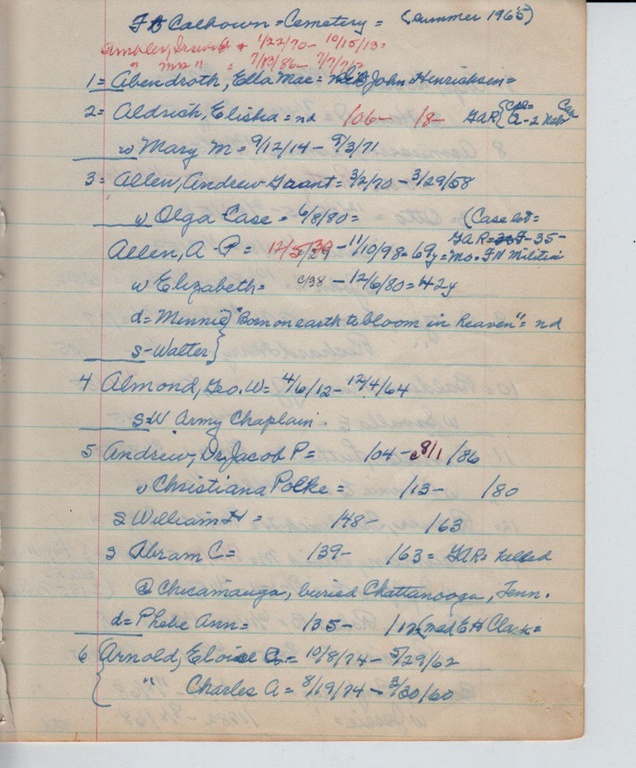 Ft Calhoun = Cemetery = (Summer 1965)
Ambler, Drewitt + 1/22/70 - 10/15/13 =
" mrs " = 7/ /86 - 7/7/7
1 = Abendroth, Ella Mae = John Henrichsen =
2 = Aldrich, Elisha = nd /06 - /8 - GAR {Cpl = Co
A-2 Neb
w Mary M = 9/12/14 - 9/3/71
3 = Allen, Andrew Grant = 3/2/70 - 3/29/58
w Olga Case = 6/8/80 = (Case lot =
Allen, A P = 12/5/29 - 11/10/98 = 69y = GAR = -35-
Mo. Militia
w Elizabeth = c/38 - 12/6/80 = 42y
d = Minnie} "Born on earth to bloom in heaven" = nd
s - Walter}
4 Almond, Geo. W = 4/6/12 - 12/4/64
S = W Army Chaplain .
5 Andrew, Dr, Jacob P = /04 - 8/1 /86
w Christiana Polke = /13 - /80
s William H = /48 - /63
s Abram C = /39 - /63 = GAR = killed
@ Chicamauga, buried Chattanooga, Tenn.
d = Phebe Ann = /35 - /12 (md E H Clark =
6 {Arnold, Eloise = 10/8/74 - 5/29/62
" Charles A = 8/19/74 - 3/30/60